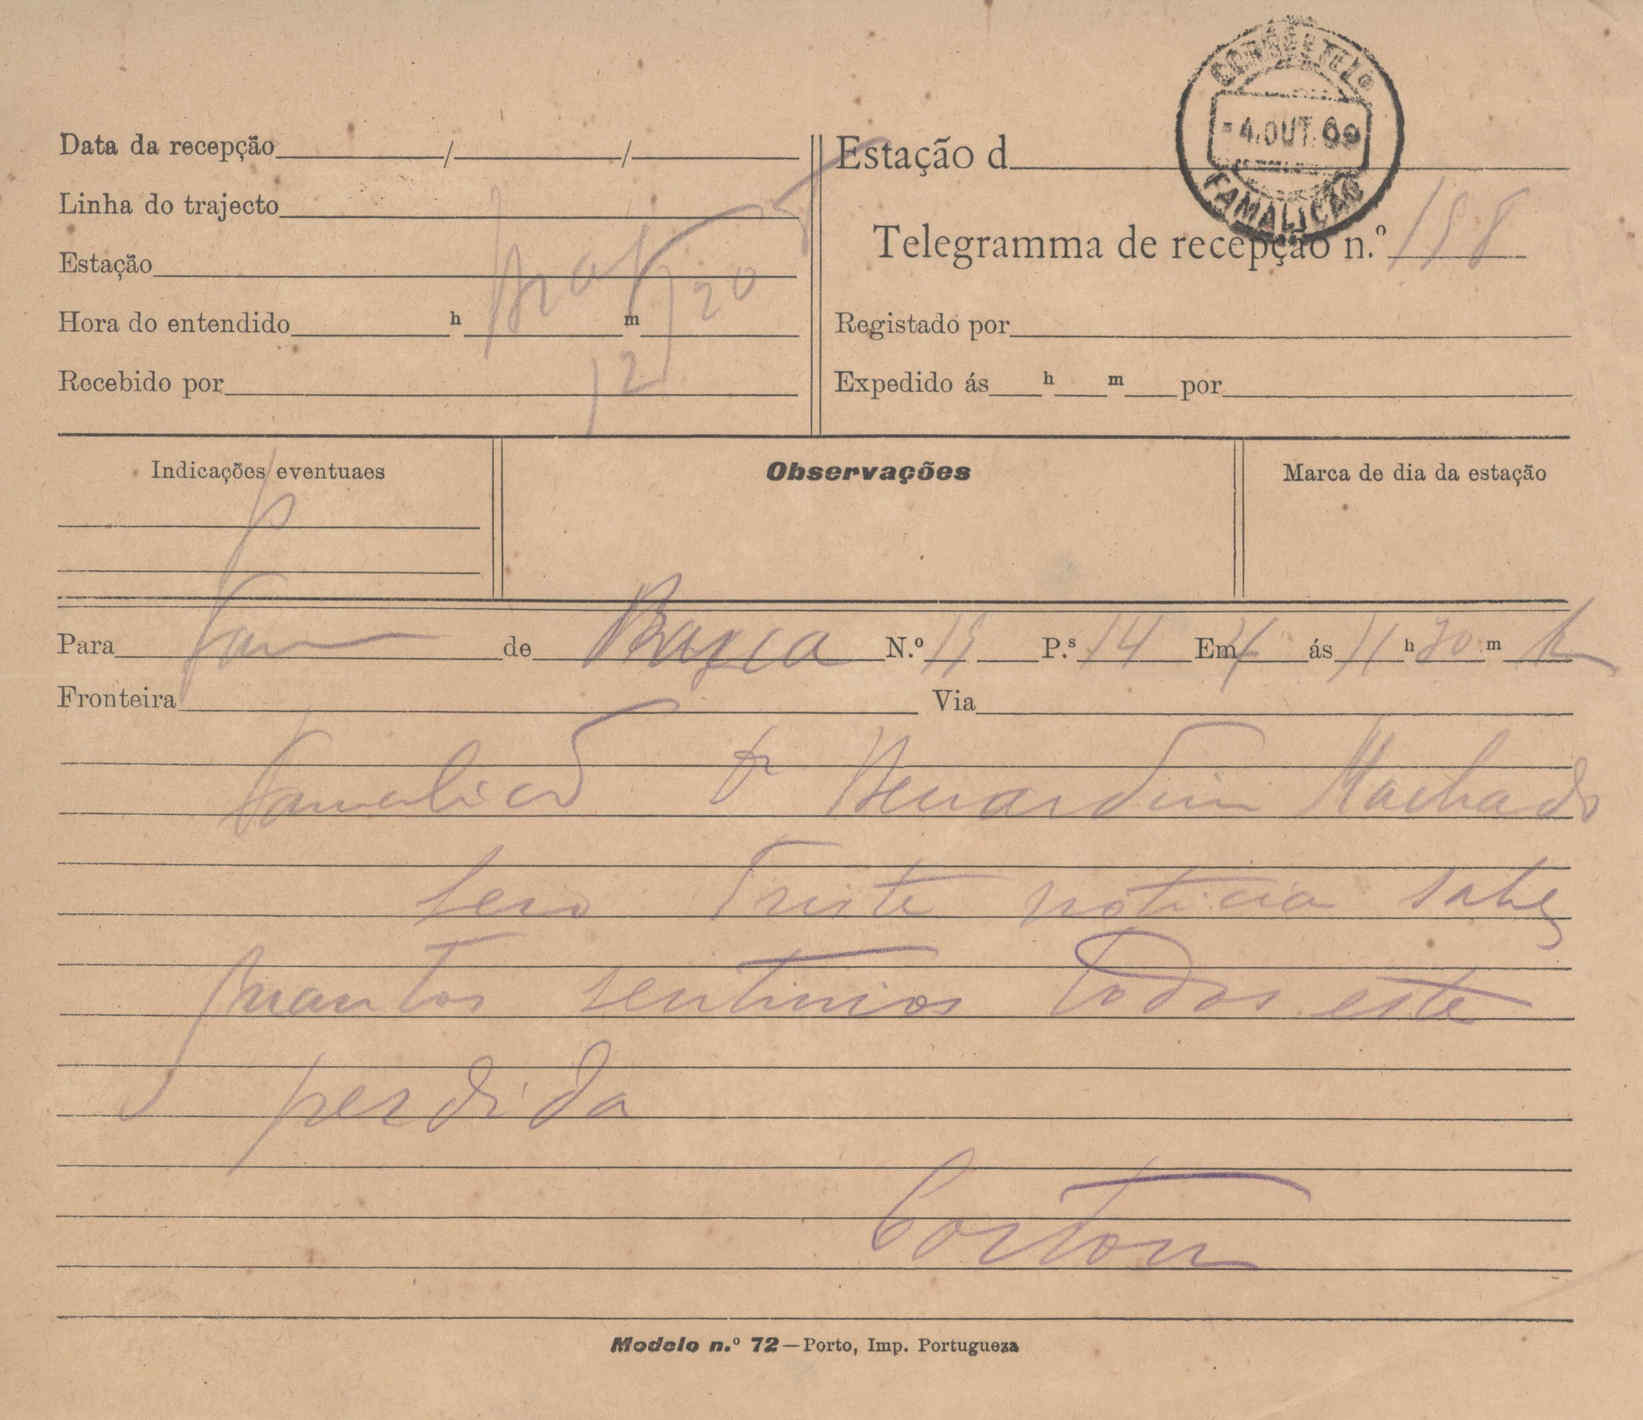 CORRº E TELº
-4.OUT.09
FAMALICÃO
Data da recepção / /
Estação d
Linha do trajecto
Telegramma de recepção n.º 198
Estação
Hora do entendido h m
Registado por
Recebido por
Expedido ás h m por
12 20
Indicações eventuaes
Observações
Marca de dia da estação
Para Fam de Barca N.º P.s 14 Em 4 ás 11 h 30 m
Fronteira Via
Famalicão Dr Bernardino Machado
triste noticia sabe
quantos sentimos todos este
perdida
Modelo n.º 72—Porto, Imp. Portugueza